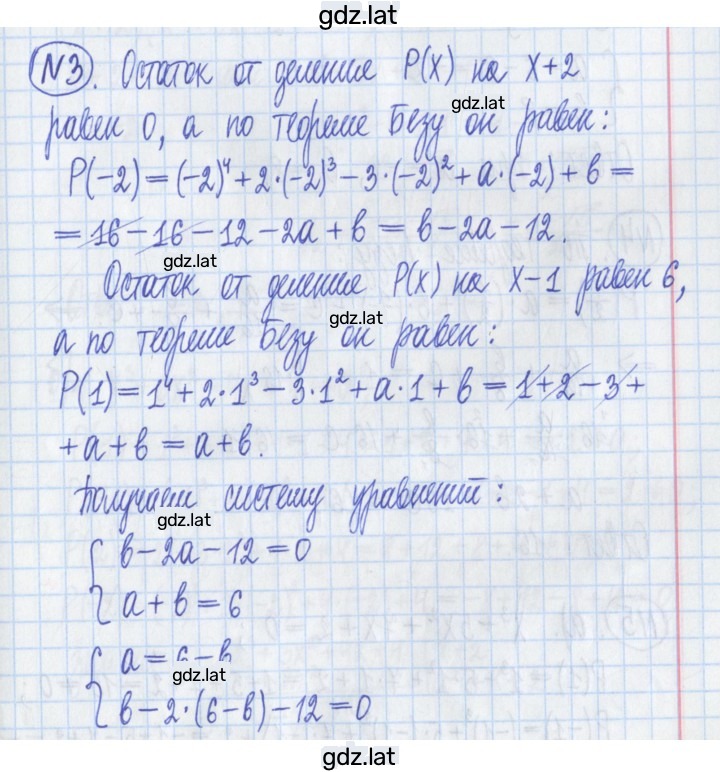 gdz.lat
№3. Остаток от деления P(x) на x+2
gdz.lat
равен 0, а по теореме Безу он равен:
P(-2) = (-2)⁴ + 2·(-2)³ - 3·(-2)² + a·(-2) + в =
= 16 - 16 - 12 - 2a + в = в - 2a - 12.
gdz.lat
Остаток от деления P(x) на x-1 равен 6,
gdz.lat
а по теореме Безу он равен:
P(1) = 1⁴ + 2·1³ - 3·1² + a·1 + в = 1 + 2 - 3 +
+ a + в = a + в.
Получаем систему уравнений:
gdz.lat
{ в - 2a - 12 = 0
a + в = 6
{ a = 6 - в
gdz.lat
в - 2·(6 - в) - 12 = 0
gdz.lat